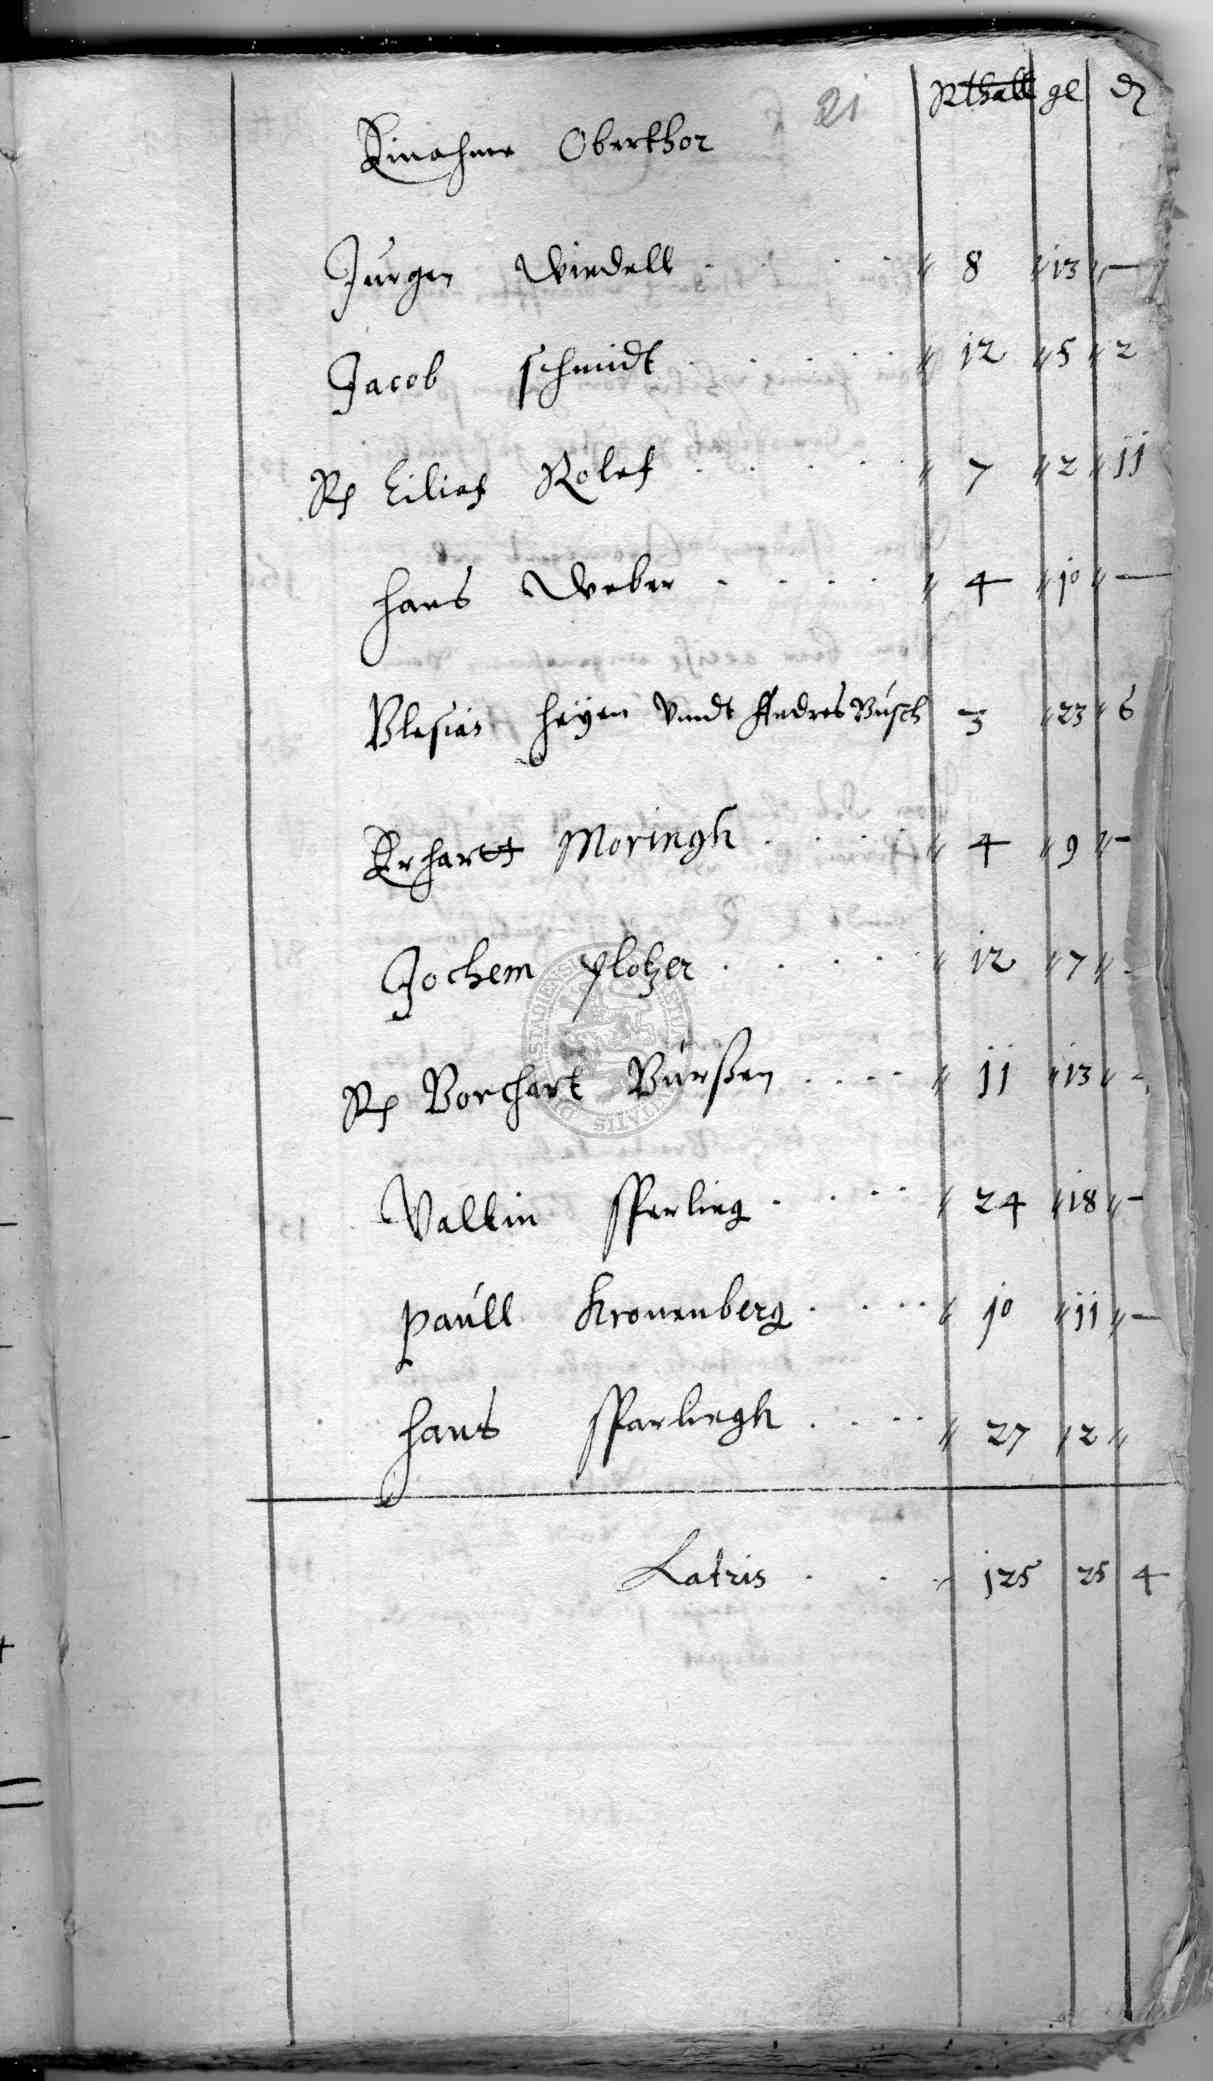 21
Rthall gl ₰
Einahme Oberthor
Jurgen Wiedell . . . . " 8 " 13 " —
Jacob Schmidt . . . . . " 12 " 5 " 2
Rp Eilias Rolef . . . . . " 7 " 2 " 11
Hans Weber . . . . " 4 " 10 " —
Blesias Heÿen Vndt Andres Busch 3 " 23 " 6
Erhartt Moringh . . . . " 4 " 9 " —
Jochem Plotzer . . . . . " 12 " 7 " -
Rp Borchart Burßen . . . . " 11 " 13 " -
Valtin Sperling . . . . " 24 " 18 " —
Paull Kronenberg . . . . " 10 " 11 " —
Hans Sparlingh . . . . " 27 12 "
Latris . . . 125 25 4